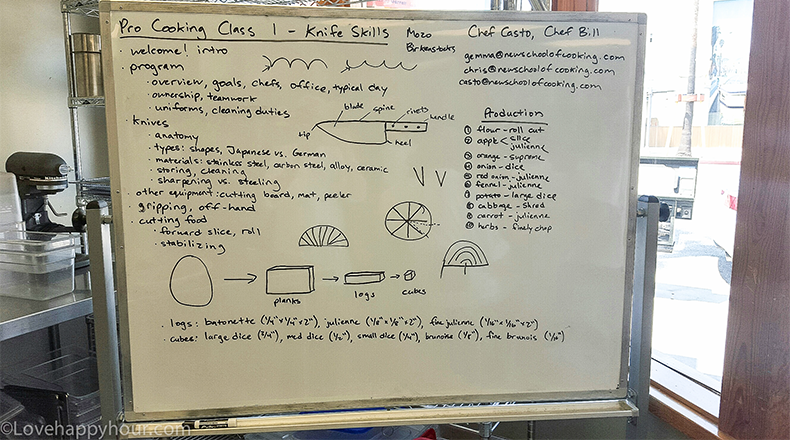 Pro Cooking Class 1 - Knife Skills
Mozo
Birkenstocks
Chef Casto, Chef Bill
gemma@newschoolofcooking.com
chris@newschoolofcooking.com
casto@newschoolofcooking.com
· welcome! intro
· program
· overview, goals, chefs, office, typical day
· ownership, teamwork
· uniforms, cleaning duties
· knives
· anatomy
· types: shapes, Japanese vs. German
· materials: stainless steel, carbon steel, alloy, ceramic
· storing, cleaning
· sharpening vs. steeling
· other equipment: cutting board, mat, peeler
· gripping, off-hand
· cutting food
· forward slice, roll
· stabilizing
blade
spine
rivets
handle
tip
heel
Production
① flour - roll cut
② apple < slice
julienne
③ orange - supreme
④ onion - dice
⑤ red onion - julienne
⑥ fennel - julienne
⑦ potato - large dice
⑧ cabbage - shred
⑨ carrot - julienne
⑩ herbs - finely chop
planks
logs
cubes
· logs: batonette (1/4" x 1/4" x 2"), julienne (1/8" x 1/8" x 2"), fine julienne (1/16" x 1/16" x 2")
· cubes: large dice (3/4"), med dice (1/2"), small dice (1/4"), brunoise (1/8"), fine brunois (1/16")
©Lovehappyhour.com